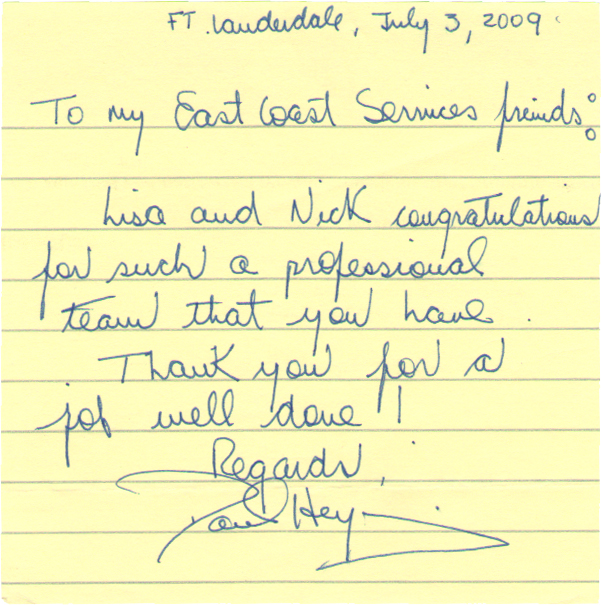 FT. Lauderdale, July 3, 2009
To my East Coast Services freinds:
Lisa and Nick congratulations
for such a professional
team that you have.
Thank you for a
job well done!
Regards,